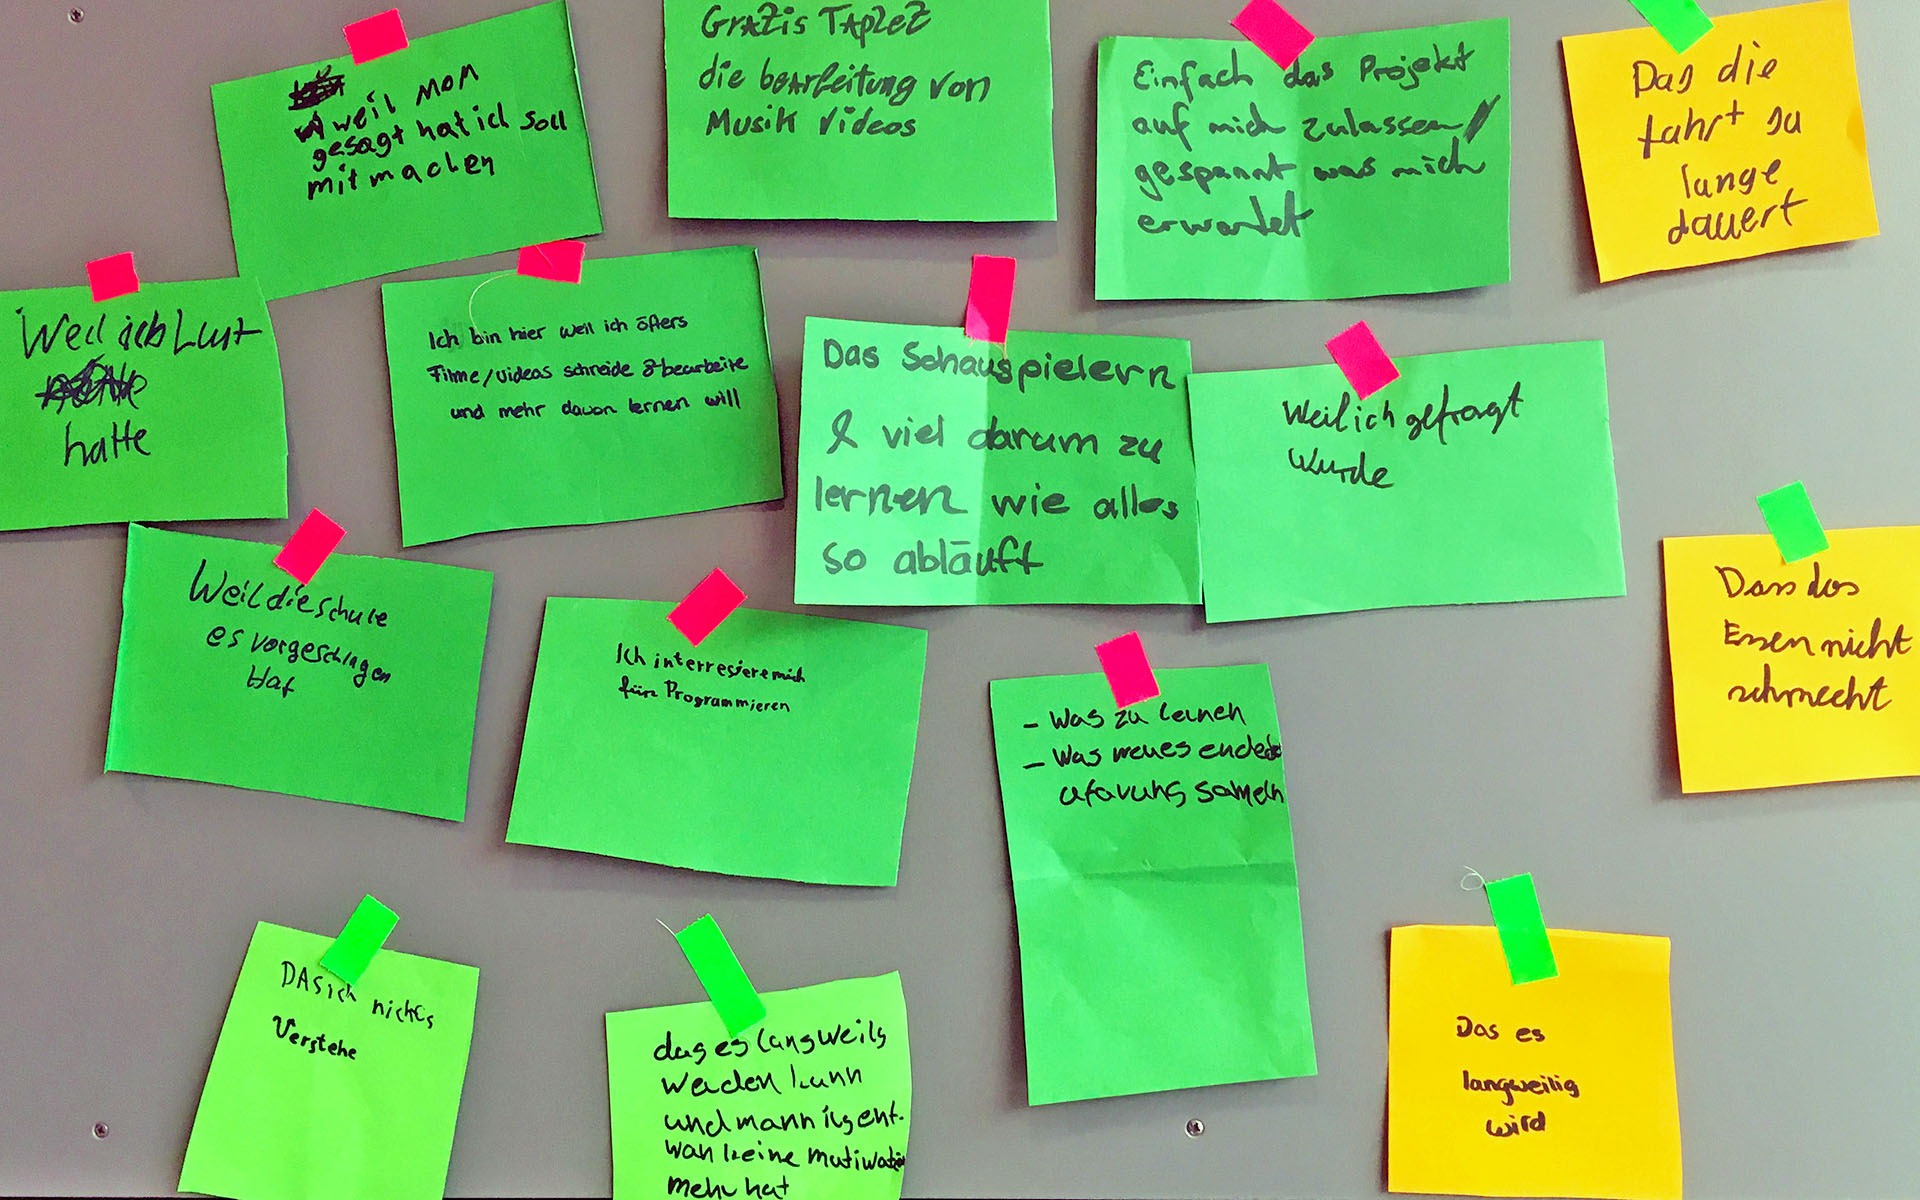 weil MOM
gesagt hat ich soll
mitmachen
GRATis TApleT
die beArbeitung von
Musik Videos
Einfach das Projekt
auf mich zulassen/
gespannt was mich
erwartet
Das die
fahrt zu
lange
dauert
Weil ich Lust
hatte
Ich bin hier weil ich öfters
Filme/videos schneide & bearbeite
und mehr davon lernen will
Das Schauspielern
& viel darum zu
lernen wie alles
so abläuft
Weil ich gefragt
wurde
Weil die schule
es vorgeschlagen
Hat
Ich interresiere mich
für Programmieren
- Was zu lernen
- Was neues
sameln
Dass das
Essen nicht
schmeckt
DAS ich nichts
Verstehe
das es langweilig
werden kann
und mann
keine mutiwation
mehr hat
Das es
langweilig
wird